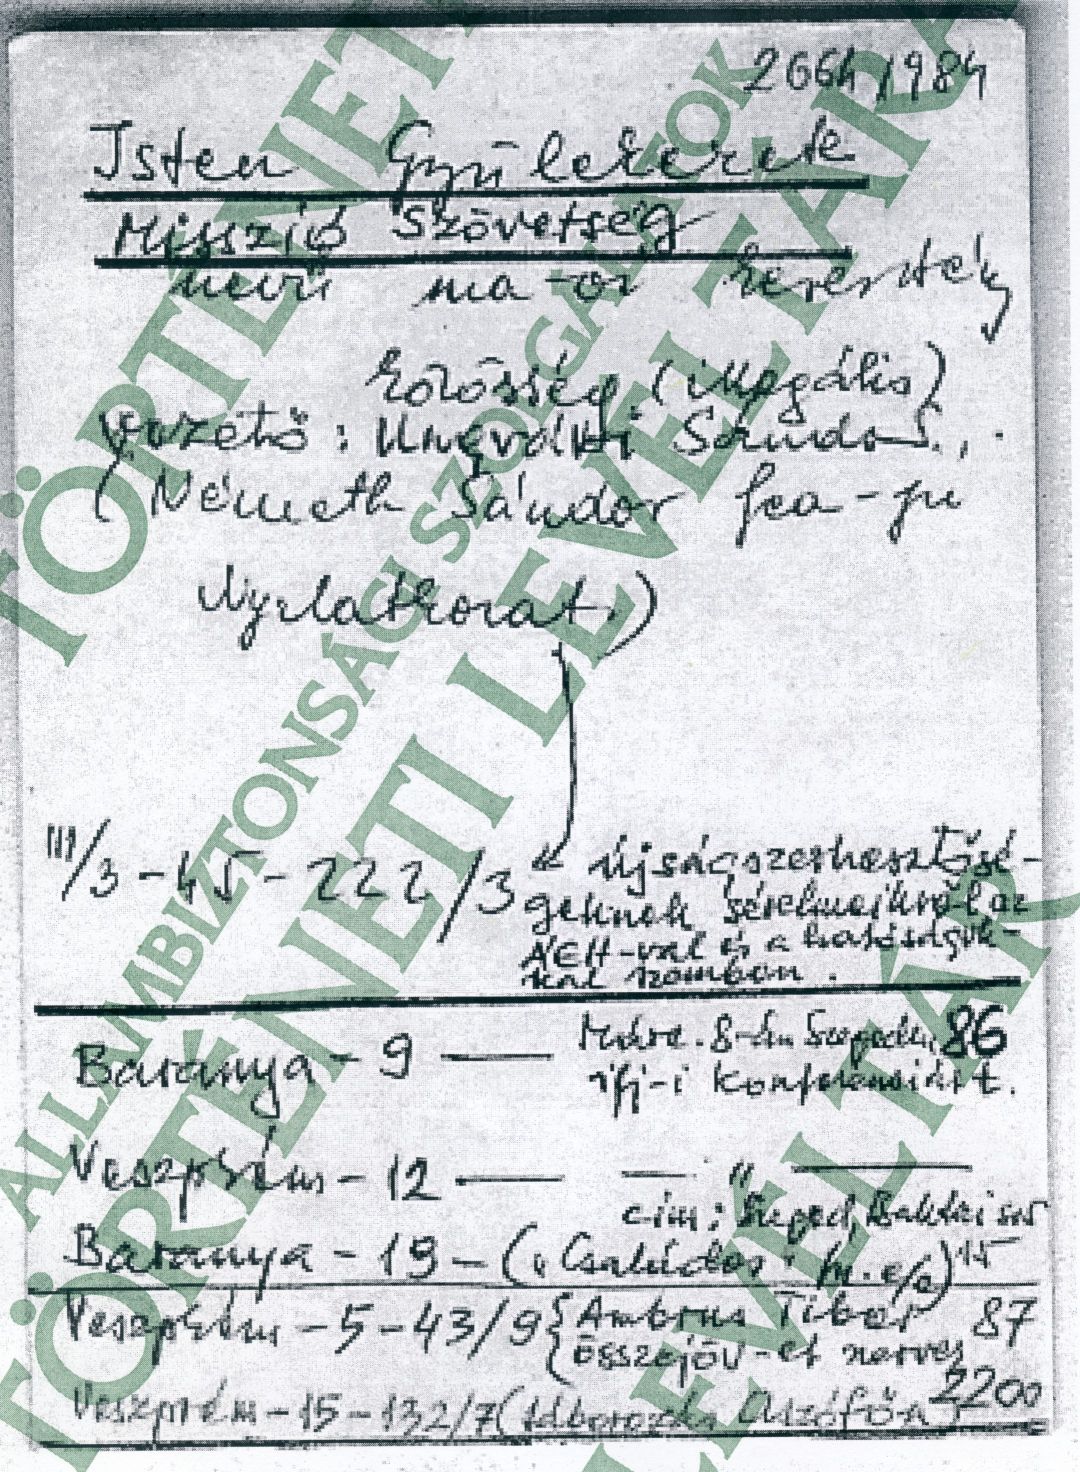 2664/1984
Isten Gyülekezetek
Misszió Szövetség
nevű ma-or keresztény
közösség. (illegális)
vezető: Ungvári Sándor
(Németh Sándor fca-ju
Nyilatkozat.)
III/3-45-222/3 újságszerkesztősé-
geknek sérelmeikről az
ÁEH-val és a hatóságok-
kal szemben.
Baranya - 9 — Márc. 8-án Szegeden 86
ifj-i konferenciát.
Veszprém - 12 — — " —
cím: Szeged,
Baranya - 19 - ( 15
Veszprém - 5 - 43/9 {Ambrus Tibor 87
összejöv-et szervez
Veszprém - 15 - 132/7 (táborozás Aszófőn) 2200
ÁLLAMBIZTONSÁGI SZOLGÁLATOK
TÖRTÉNETI LEVÉLTÁRA